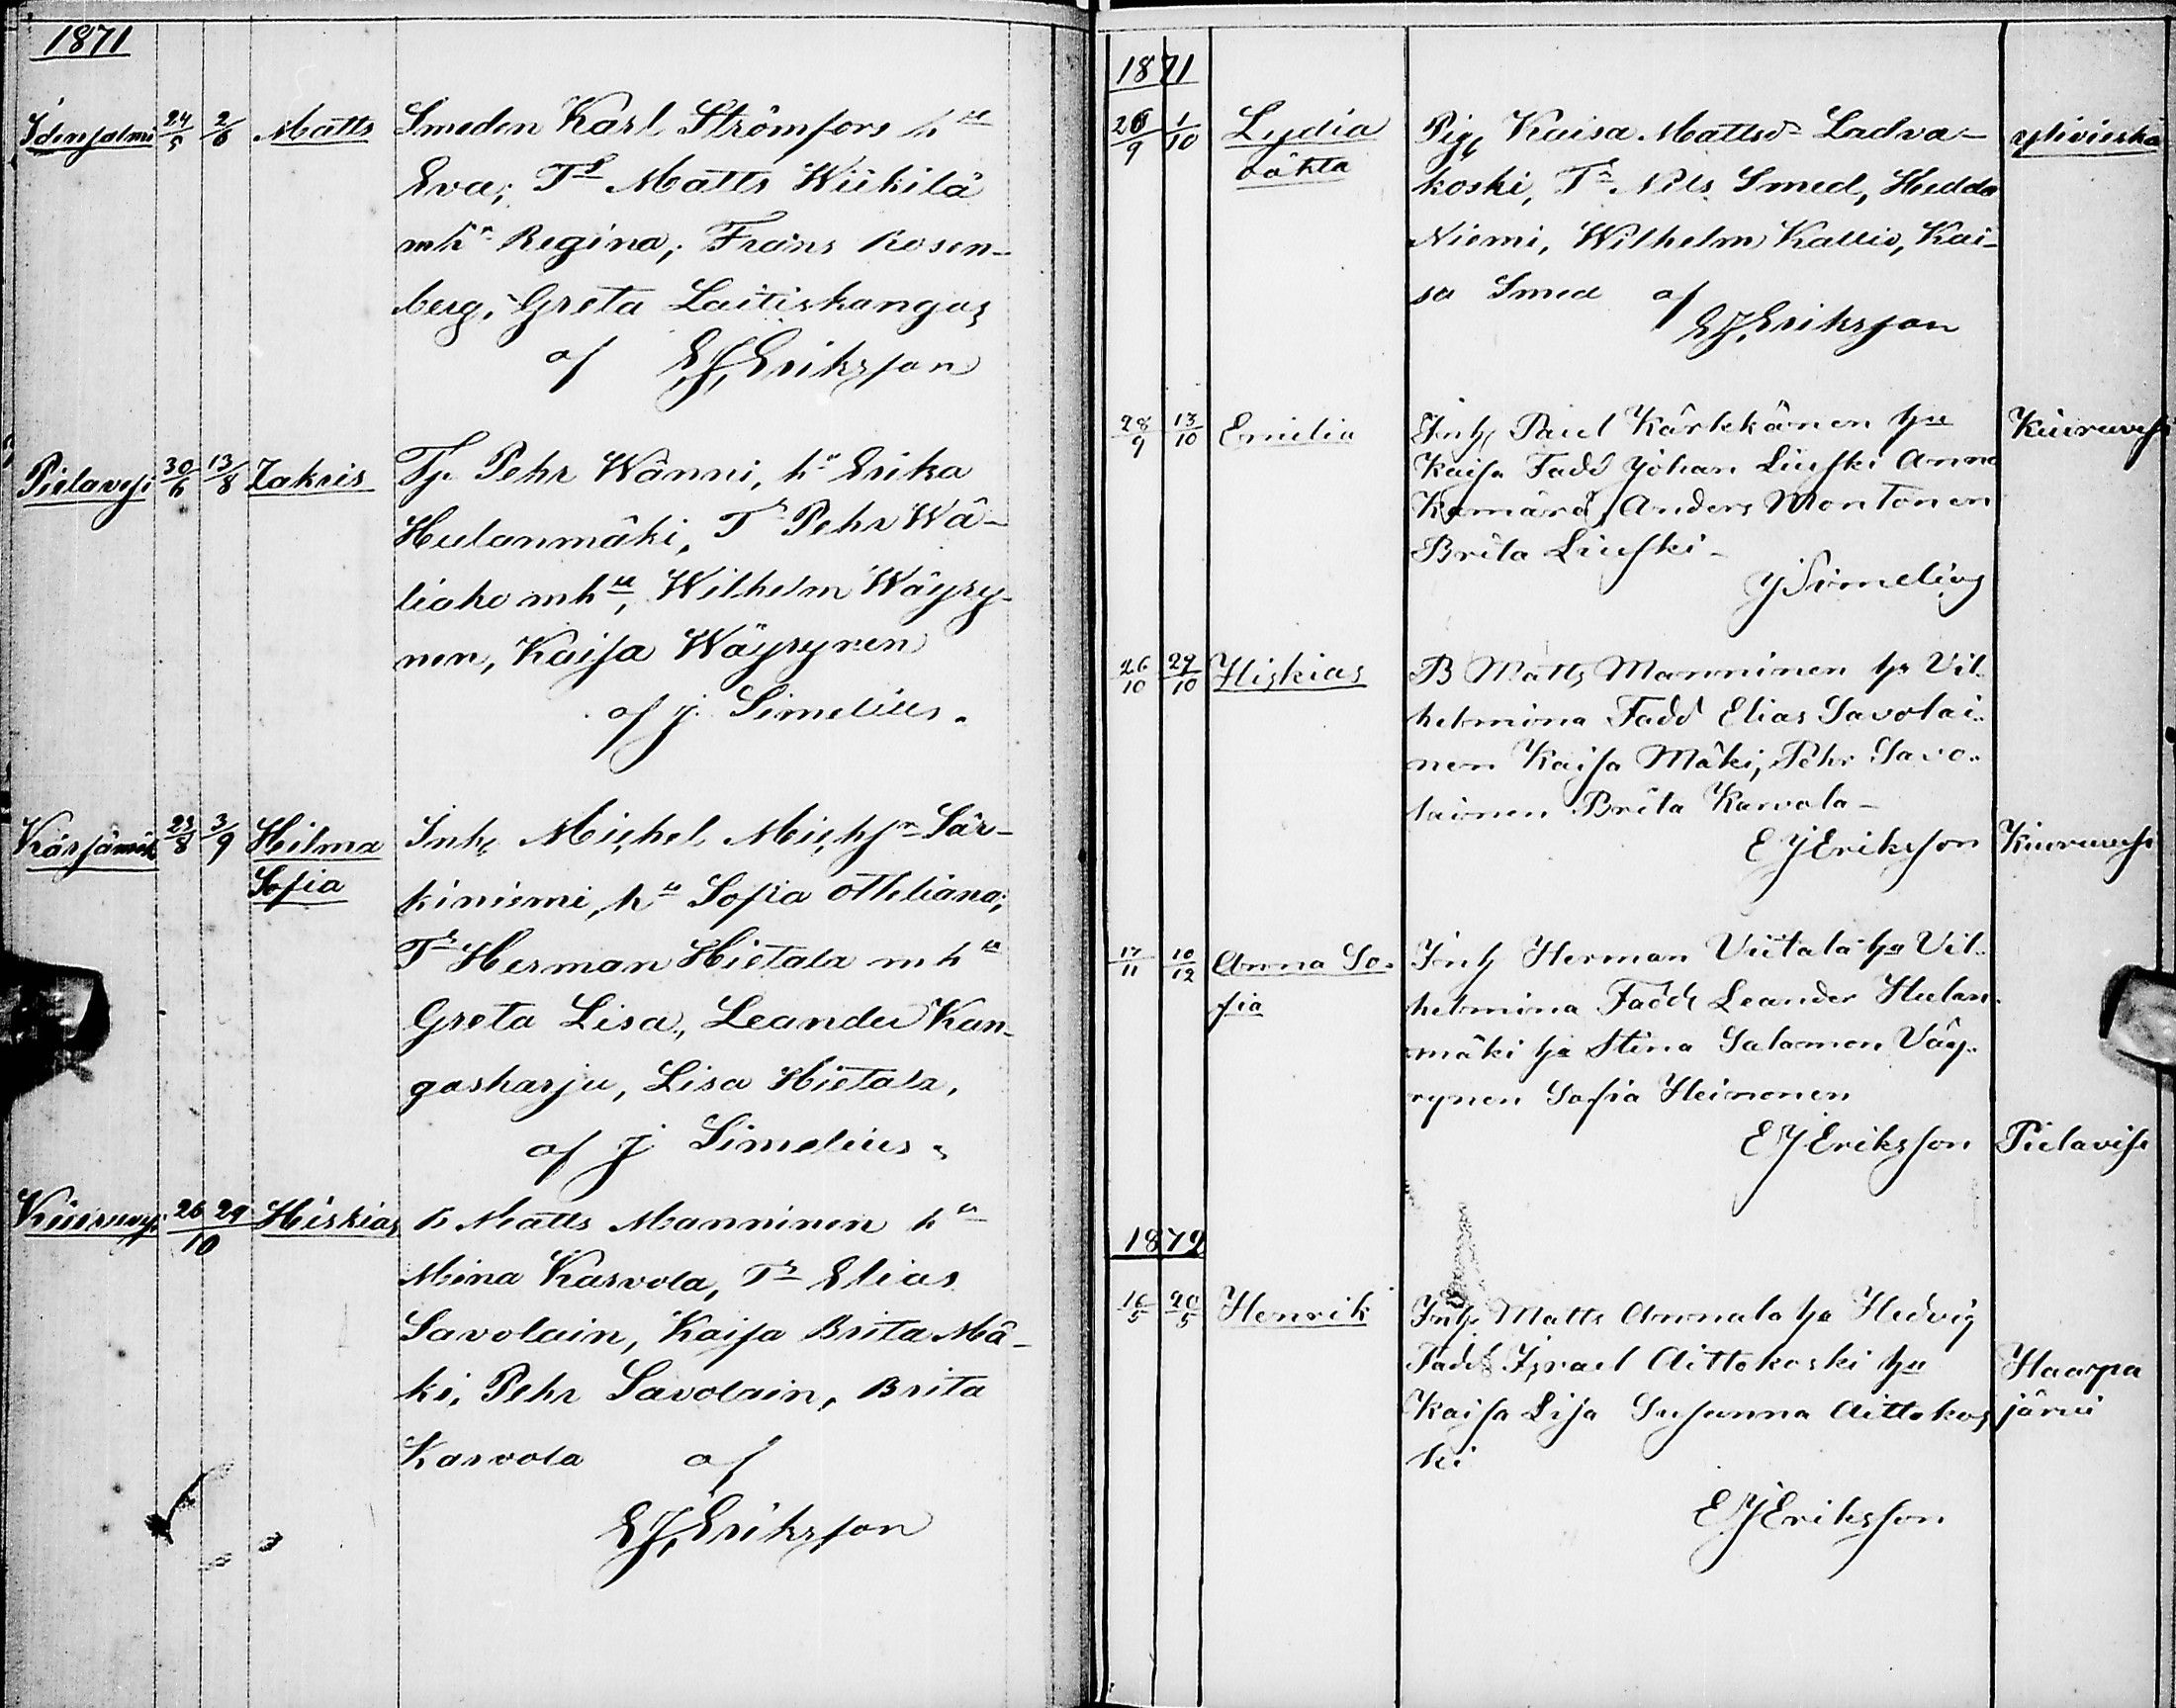 1871
Idensalmi 24/5 2/6 Matts Smeden Karl Strömfors hu
Eva; Tr Matts Wiikilä
mhu Regina; Frans Rosen-
berg, Greta Laitiskangas
af EJ, Eriksson
Pielavesi 30/6 13/8 Zakris Tp. Pehr Wänni, hu Erika
Hulanmäki, Tr Pehr Wä-
liaho mhu, Wilhelm Wäyry-
nen, Kaisa Wäyrynen
af J. Simelius.
Kärsämäk 23/8 3/9 Hilma Inh Michel Michsn Sär-
Sofia kiniemi, hu Sofia Otteliana;
Tr Herman Hietala mhu
Greta Lisa, Leander Kan-
gasharju, Lisa Hietala,
af J Simelius.
Kiuruvesi 26 29/10 Hiskias B Matts Manninen hu
Mina Karvola, Tr Elias
Savolain, Kaisa Brita Mä-
ki, Pehr Savolain, Brita
Karvola af
EJ, Eriksson
1871
26/9 1/10 Lydia Pig Kaisa Mattsd Ladva- Ylivieska
oäkta koski, Tr Nils Smed, Hedda
Niemi, Wilhelm Kallio, Kai-
sa Smed af
EJ, Eriksson
28/9 13/10 Emilia Inh Paul Kärkkänen hu Kiuruvesi
Kaisa Fadd Johan Liuski Anna
Kamärä, Anders Montonen
Brita Liuski-
J Simelius
26/10 29/10 Hiskias B Matts Manninen h Vil-
helmina Fadd Elias Savolai-
nen Kaisa Mäki, Pehr Savo-
lainen Brita Karvola-
E J Eriksson Kiuruvesi
17/11 10/12 Anna So- Inh Herman Viitala hu Vil-
fia helmina Fadd Leander Hulan-
mäki hu Stina Salomon Väy-
rynen Sofia Heimonen
E J Eriksson Pielavesi
1872
16/5 20/5 Henrik Inh Matts Annala hu Hedvig
Fadd Israel Aittokoski hu Haapa
Kaisa Lisa Susanna Aittokos järvi
ki
E J Eriksson